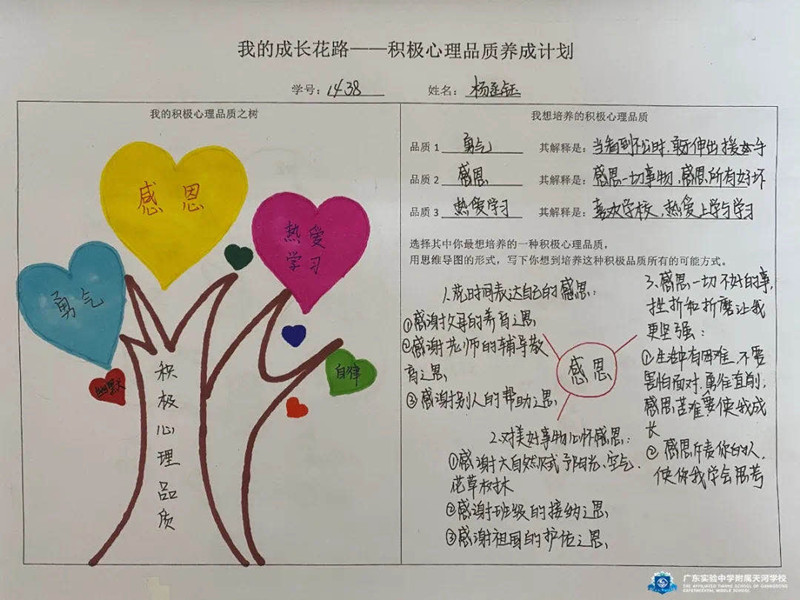 我的成长花路——积极心理品质养成计划
学号：1438 姓名：杨
我的积极心理品质之树
感恩
热爱
学习
勇气
自律
积极心理品质
我想培养的积极心理品质
品质1 勇气 其解释是：当看到不公时，敢于伸出援助手
品质2 感恩 其解释是：感恩一切事物，感恩所有好坏
品质3 热爱学习 其解释是：喜欢学校，热爱上学习学习
选择其中你最想培养的一种积极心理品质，
用思维导图的形式，写下你想到培养这种积极品质所有的可能方式。
感恩
1.花时间表达自己的感恩：
①感谢父母的养育之恩
②感谢老师的辅导教
育之恩
③感谢别人的帮助之恩
2.对美好事物心怀感恩：
①感谢大自然赋予阳光、空气、
花草树木
②感谢班级的接纳之恩
③感谢祖国的护佑之恩
3.感恩一切不好的事，
挫折和折磨让我
更坚强：
①生活中有困难，不要
害怕面对，勇往直前，
感恩苦难要使我成
长
②感恩斥责你的人，
使你我学会思考
广东实验中学附属天河学校
THE AFFILIATED TIANHE SCHOOL OF GUANGDONG
EXPERIMENTAL MIDDLE SCHOOL